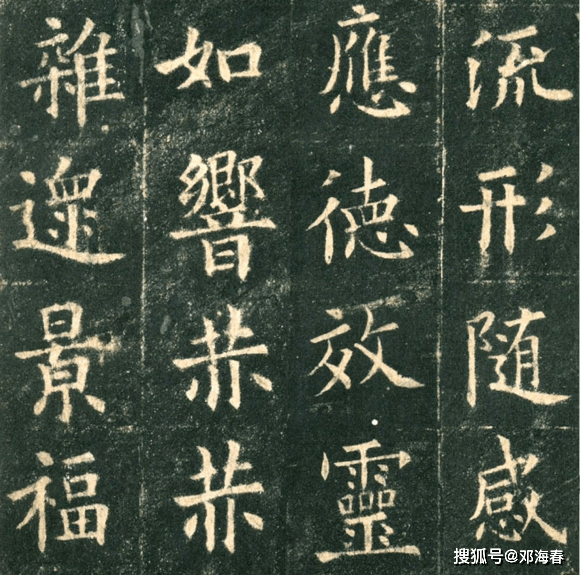 流形随感
應徳效靈
如響赫赫
雜遝景福
搜狐号@邓海春